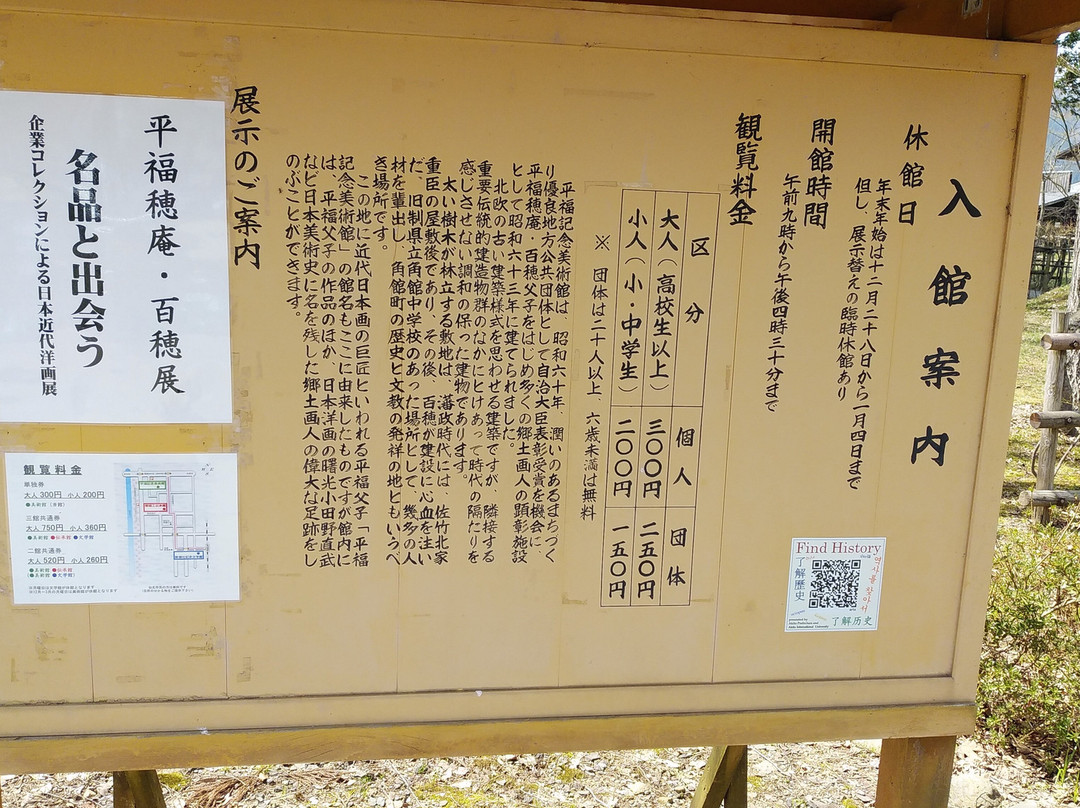 入館案内
休館日
年末年始は十二月二十八日から一月四日まで
但し、展示替えの臨時休館あり
開館時間
午前九時から午後四時三十分まで
観覧料金
区分 個人 団体
大人(高校生以上) 三〇〇円 二五〇円
小人(小・中学生) 二〇〇円 一五〇円
※ 団体は二十人以上 六歳未満は無料
平福記念美術館は、昭和六十年、潤いのあるまちづく
り優良地方公共団体として自治大臣表彰受賞を機会に、
平福穂庵・百穂父子をはじめ多くの郷土画人の顕彰施設
として昭和六十三年に建てられました。
北欧の古い建築様式を思わせる建築ですが、隣接する
重要伝統的建造物群のなかにとけあって時代の隔たりを
感じさせない調和の保った建物であります。
太い樹木が林立する敷地は、藩政時代には、佐竹北家
重臣の屋敷後であり、その後、百穂が建設に心血を注い
だ、旧制県立角館中学校のあった場所として、幾多の人
材を輩出し、角館町の歴史と文教の発祥の地ともいうべ
き場所です。
この地に近代日本画の巨匠といわれる平福父子「平福
記念美術館」の館名もここに由来したものですが館内に
は、平福父子の作品のほか、日本洋画の曙光小田野直武
など日本美術史に名を残した郷土画人の偉大な足跡をし
のぶことができます。
展示のご案内
平福穂庵・百穂展
名品と出会う
企業コレクションによる日本近代洋画展
観覧料金
単独券
大人 300円 小人 200円
●美術館(本館)
三館共通券
大人 750円 小人 360円
●美術館 ●伝承館 ●文学館
二館共通券
大人 520円 小人 260円
●美術館 ●伝承館
●美術館 ●文学館
Find History
了解歴史
역사를 찾아서
了解历史